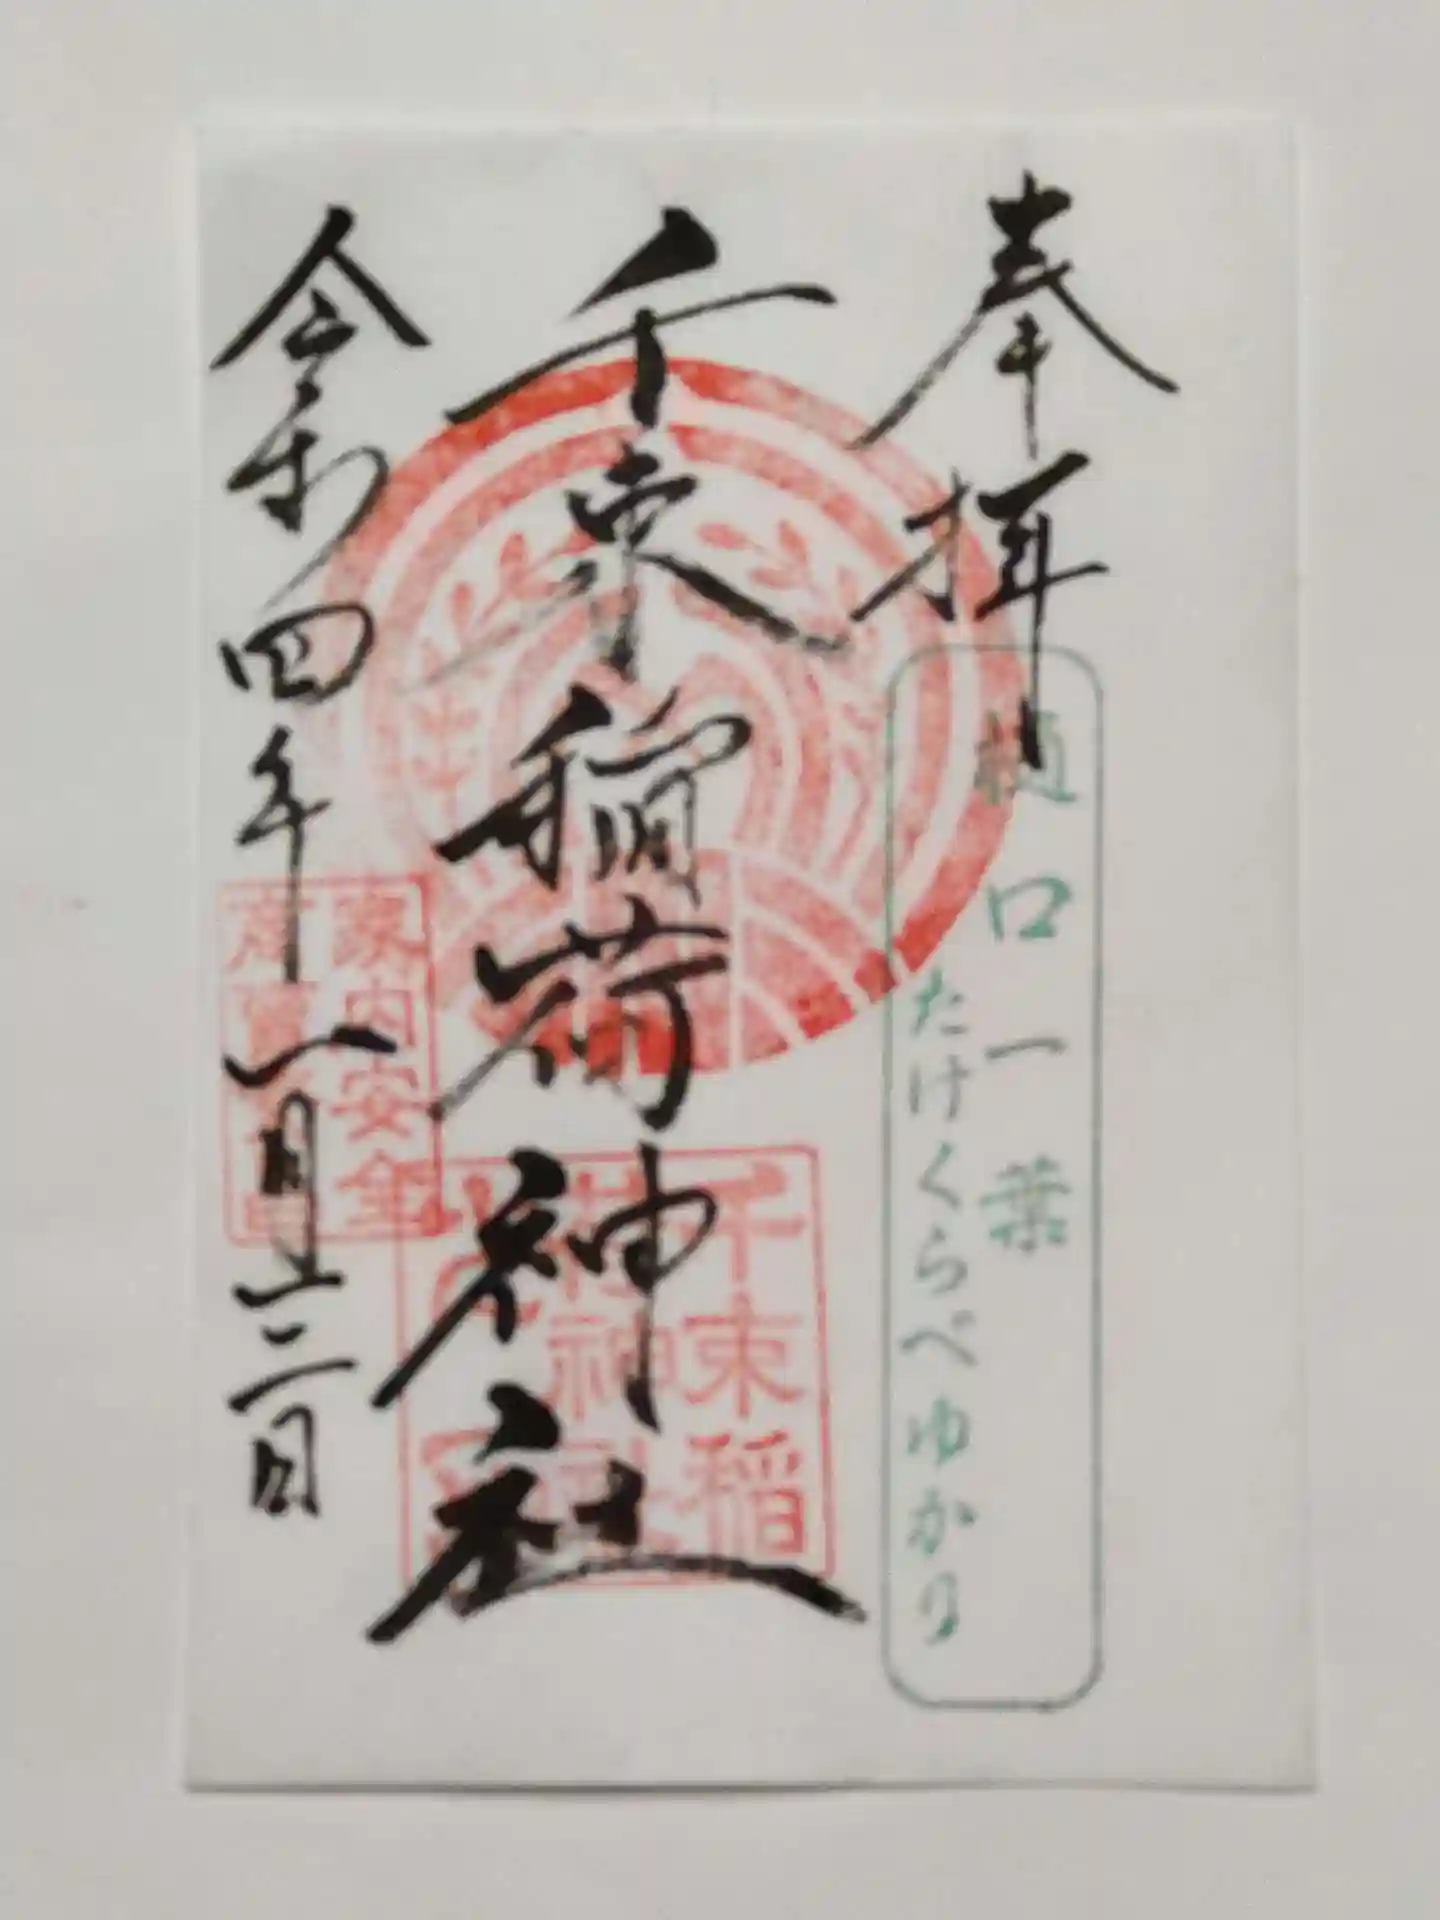 奉拝
樋口一葉
たけくらべゆかり
千束稲荷神社
千束稲
荷神社
令和四年一月十三日
家内安全